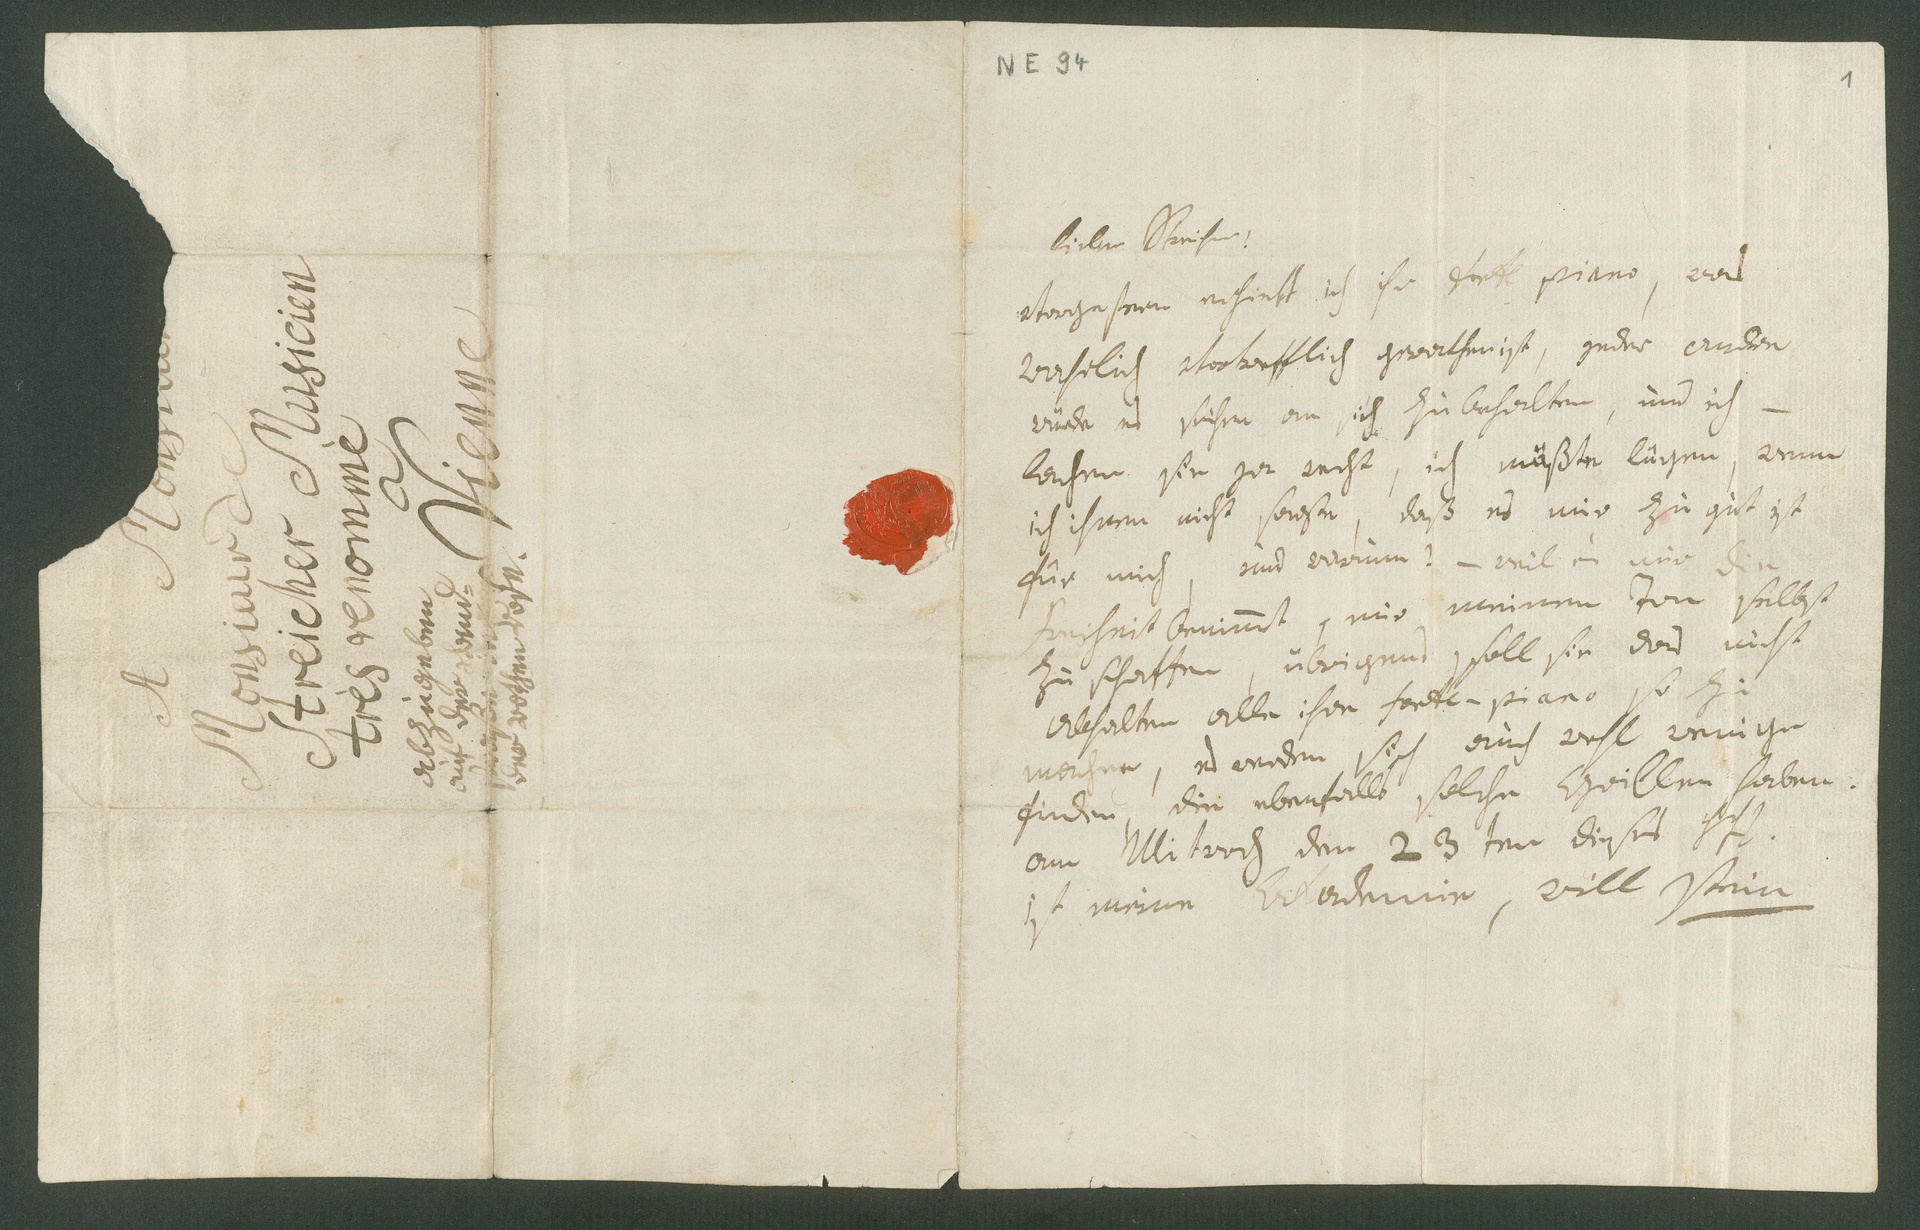 A Monsieur
Monsieur de
Streicher Musicien
très renommé
a
Vienne
abzugeben
auf der Land=
straße in der
der rothen Rose.
NE 94
1
lieber Streicher!
vorgestern erhielt ich ihr forte piano, was
wahrlich vortrefflich gerathen ist, jeder andre
würde es suchen an sich zu behalten, und ich –
lachen sie ja recht, ich müßte lügen, wenn
ich ihnen nicht sagte, daß es mir zu gut ist
für mich, und warum? – weil es mir die
Freiheit benimmt, mir meinen Ton selbst
zu schaffen, übrigens soll sie das nicht
abhalten alle ihre forte-piano so zu
machen, es werden sich auch wohl wenige
finden, die ebenfalls solche Grillen haben.
am Mitwoch den 23ten dieses
ist meine Akademie, will Stein